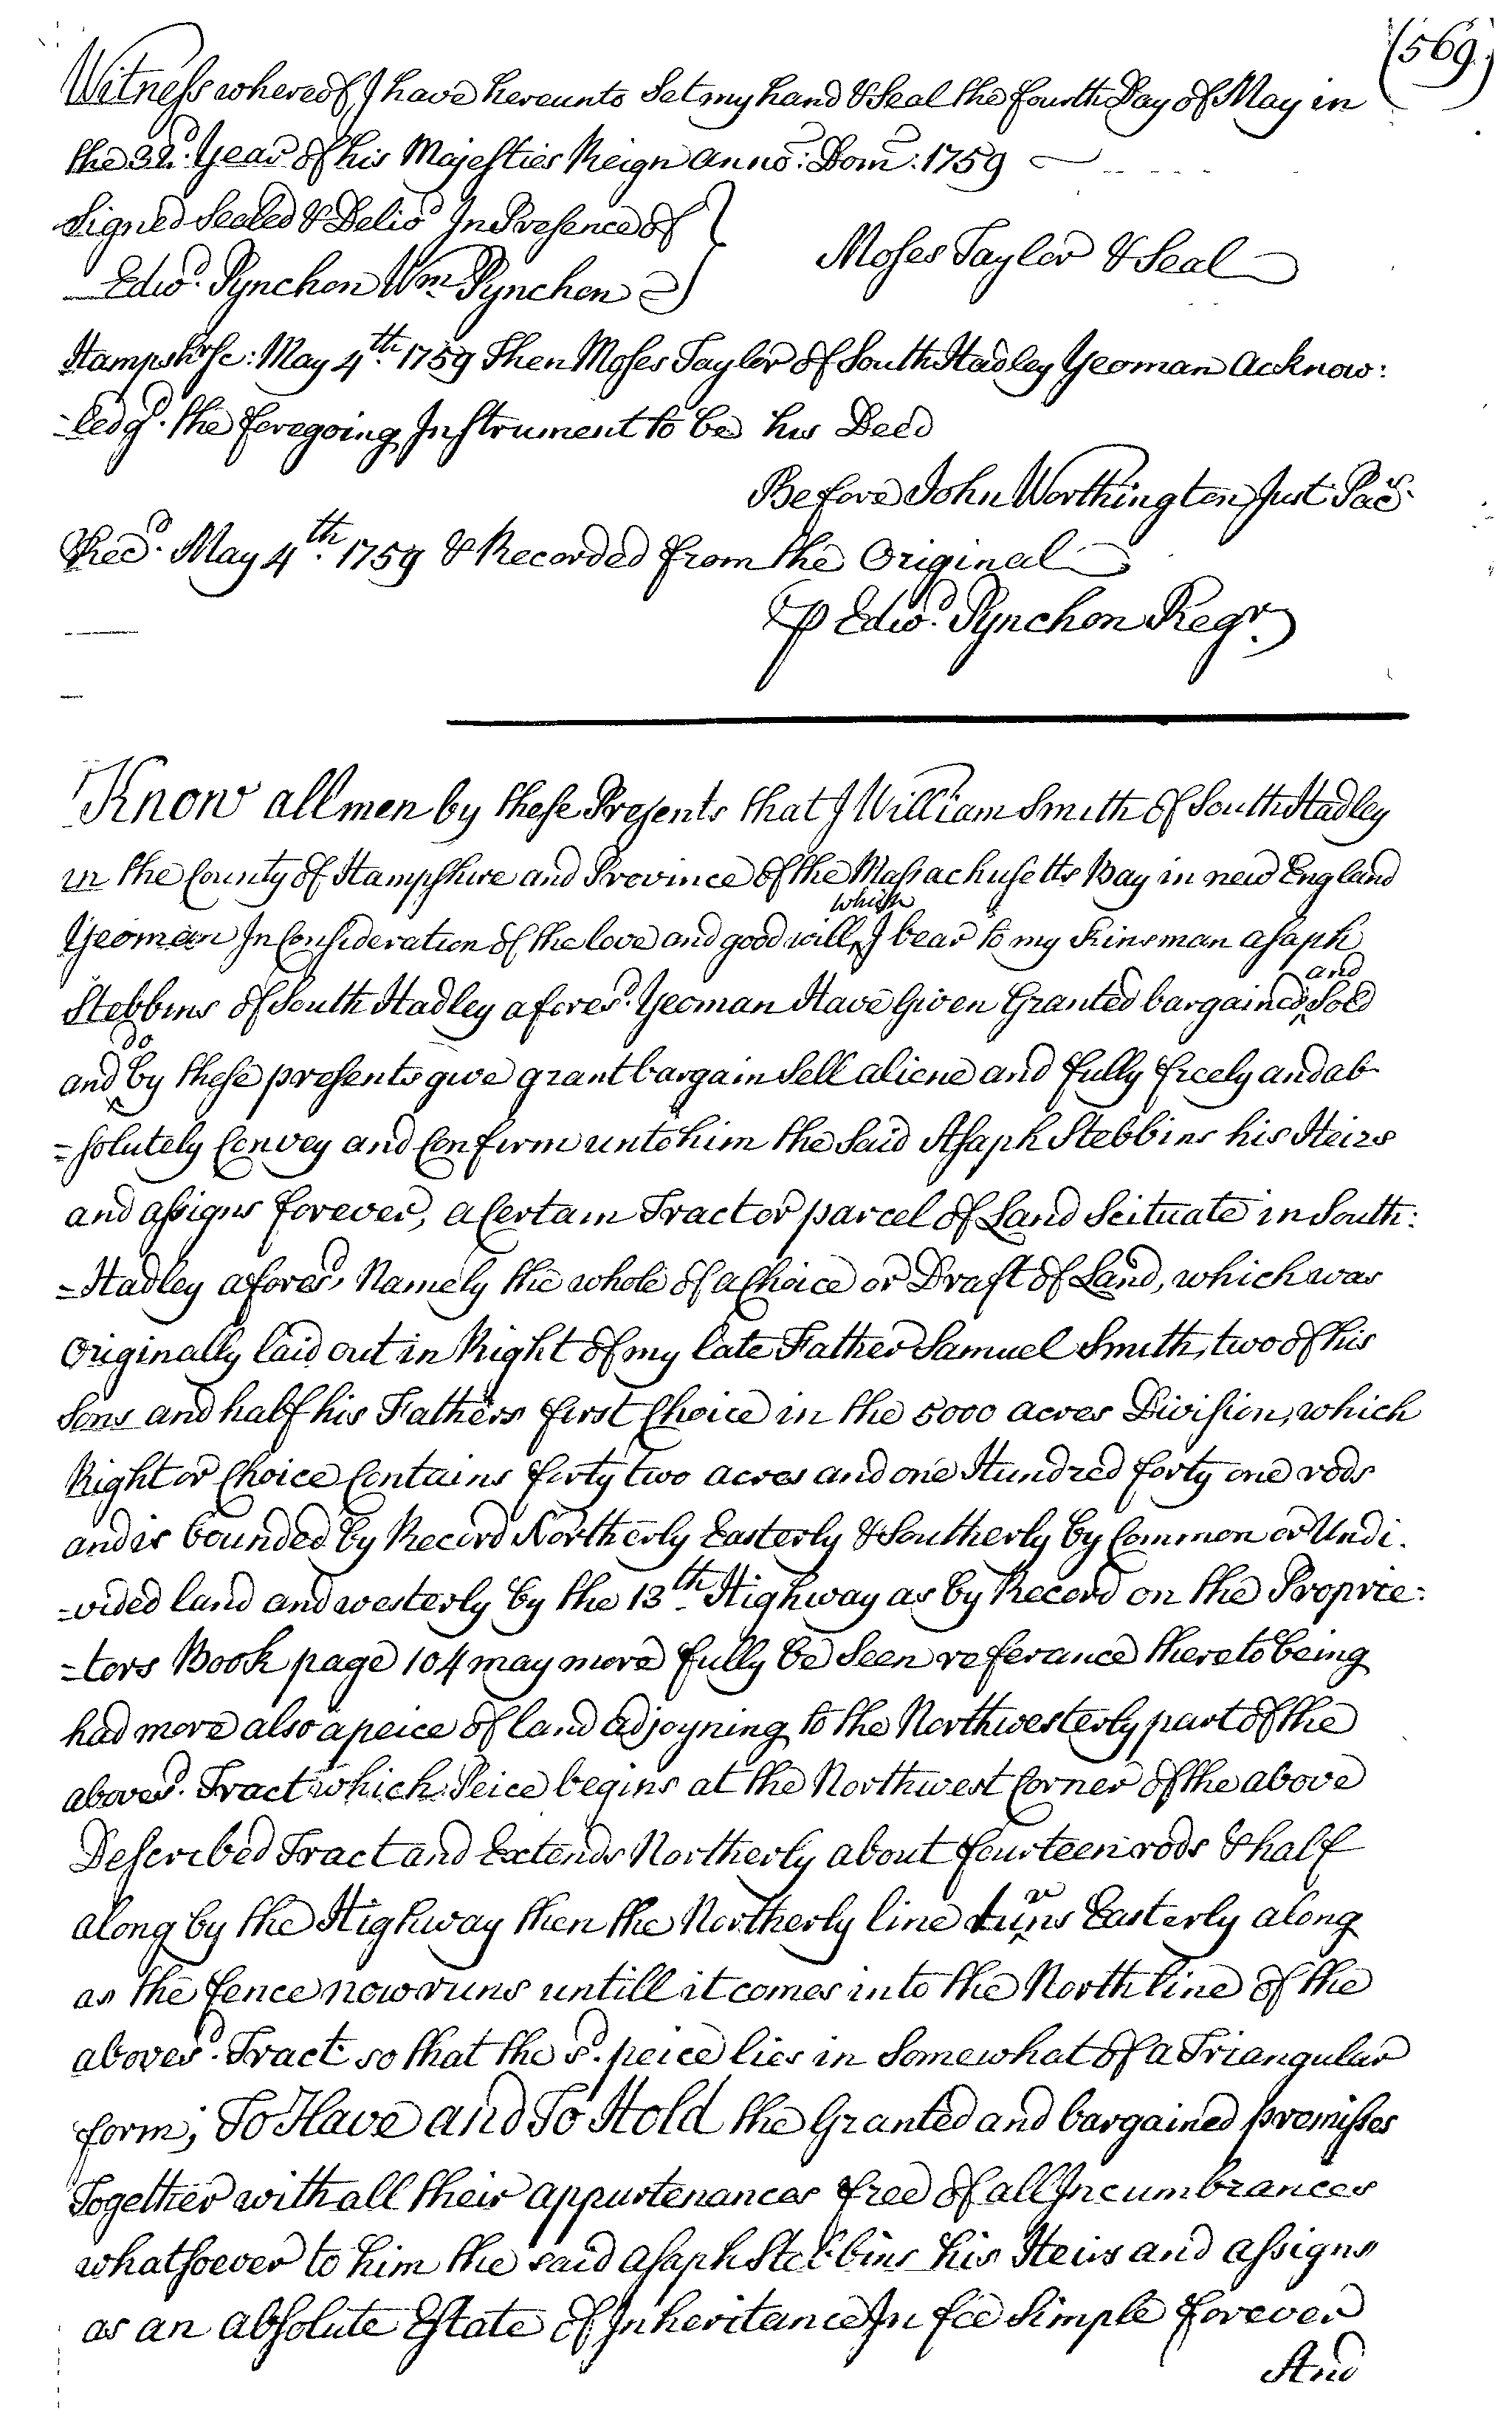 (569.)
Witness whereof I have hereunto Set my hand & Seal the fourth Day of May in
the 32d. Year of his Majesties Reign Anno: Dom: 1759
Signed Sealed & Delivd In Presence of
Edwd. Pynchon Wm. Pynchon
Moses Taylor & Seal
Hampshire: May 4th. 1759 Then Moses Taylor of South Hadley Yeoman Acknow:
-ledgd. the foregoing Instrument to be his Deed
Before John Worthington Just Pacis.
Recd. May 4th. 1759 & Recorded from the Original
P Edwd. Pynchon Regr.
Know all men by these Presents that I William Smith of South Hadley
in the County of Hampshire and Province of the Massachusetts Bay in new England
Yeoman In Consideration of the love and good will which I bear to my Kinsman Asaph
Stebbins of South Hadley afores'd. Yeoman Have Given Granted bargained and Sold
and do by these presents give grant bargain Sell aliene and fully freely and ab
=solutely Convey and Confirm unto him the said Asaph Stebbins his Heirs
and assigns forever, a Certain Tract or parcel of Land Scituate in South:
=Hadley aforesd. Namely the whole of a Choice or Draft of Land, which was
Originally laid out in Right of my late Father Samuel Smith, two of his
Sons and half his Fathers first Choice in the 5000 acres Division, which
Right or Choice Contains forty two acres and one Hundred forty one rods
and is bounded by Record Northerly Easterly & Southerly by Common or Undi.
=vided land and westerly by the 13th. Highway as by Record on the Proprie:
=tors Book page 104 may more fully be Seen referance thereto being
had more also a peice of land adjoyning to the Northwesterly part of the
abovesd. Tract which Peice begins at the Northwest Corner of the above
Described Tract and Extends Northerly about fourteen rods & half
along by the Highway then the Northerly line runs Easterly along
as the fence now runs untill it comes into the North line of the
abovesd. Tract so that the sd. peice lies in Somewhat of a Triangular
form; To Have and To Hold the Granted and bargained premisses
Together with all their appurtenances free of all Incumbrances
whatsoever to him the said Asaph Stebbins his Heirs and Assigns
as an absolute Estate of Inheritance In fee Simple forever
And